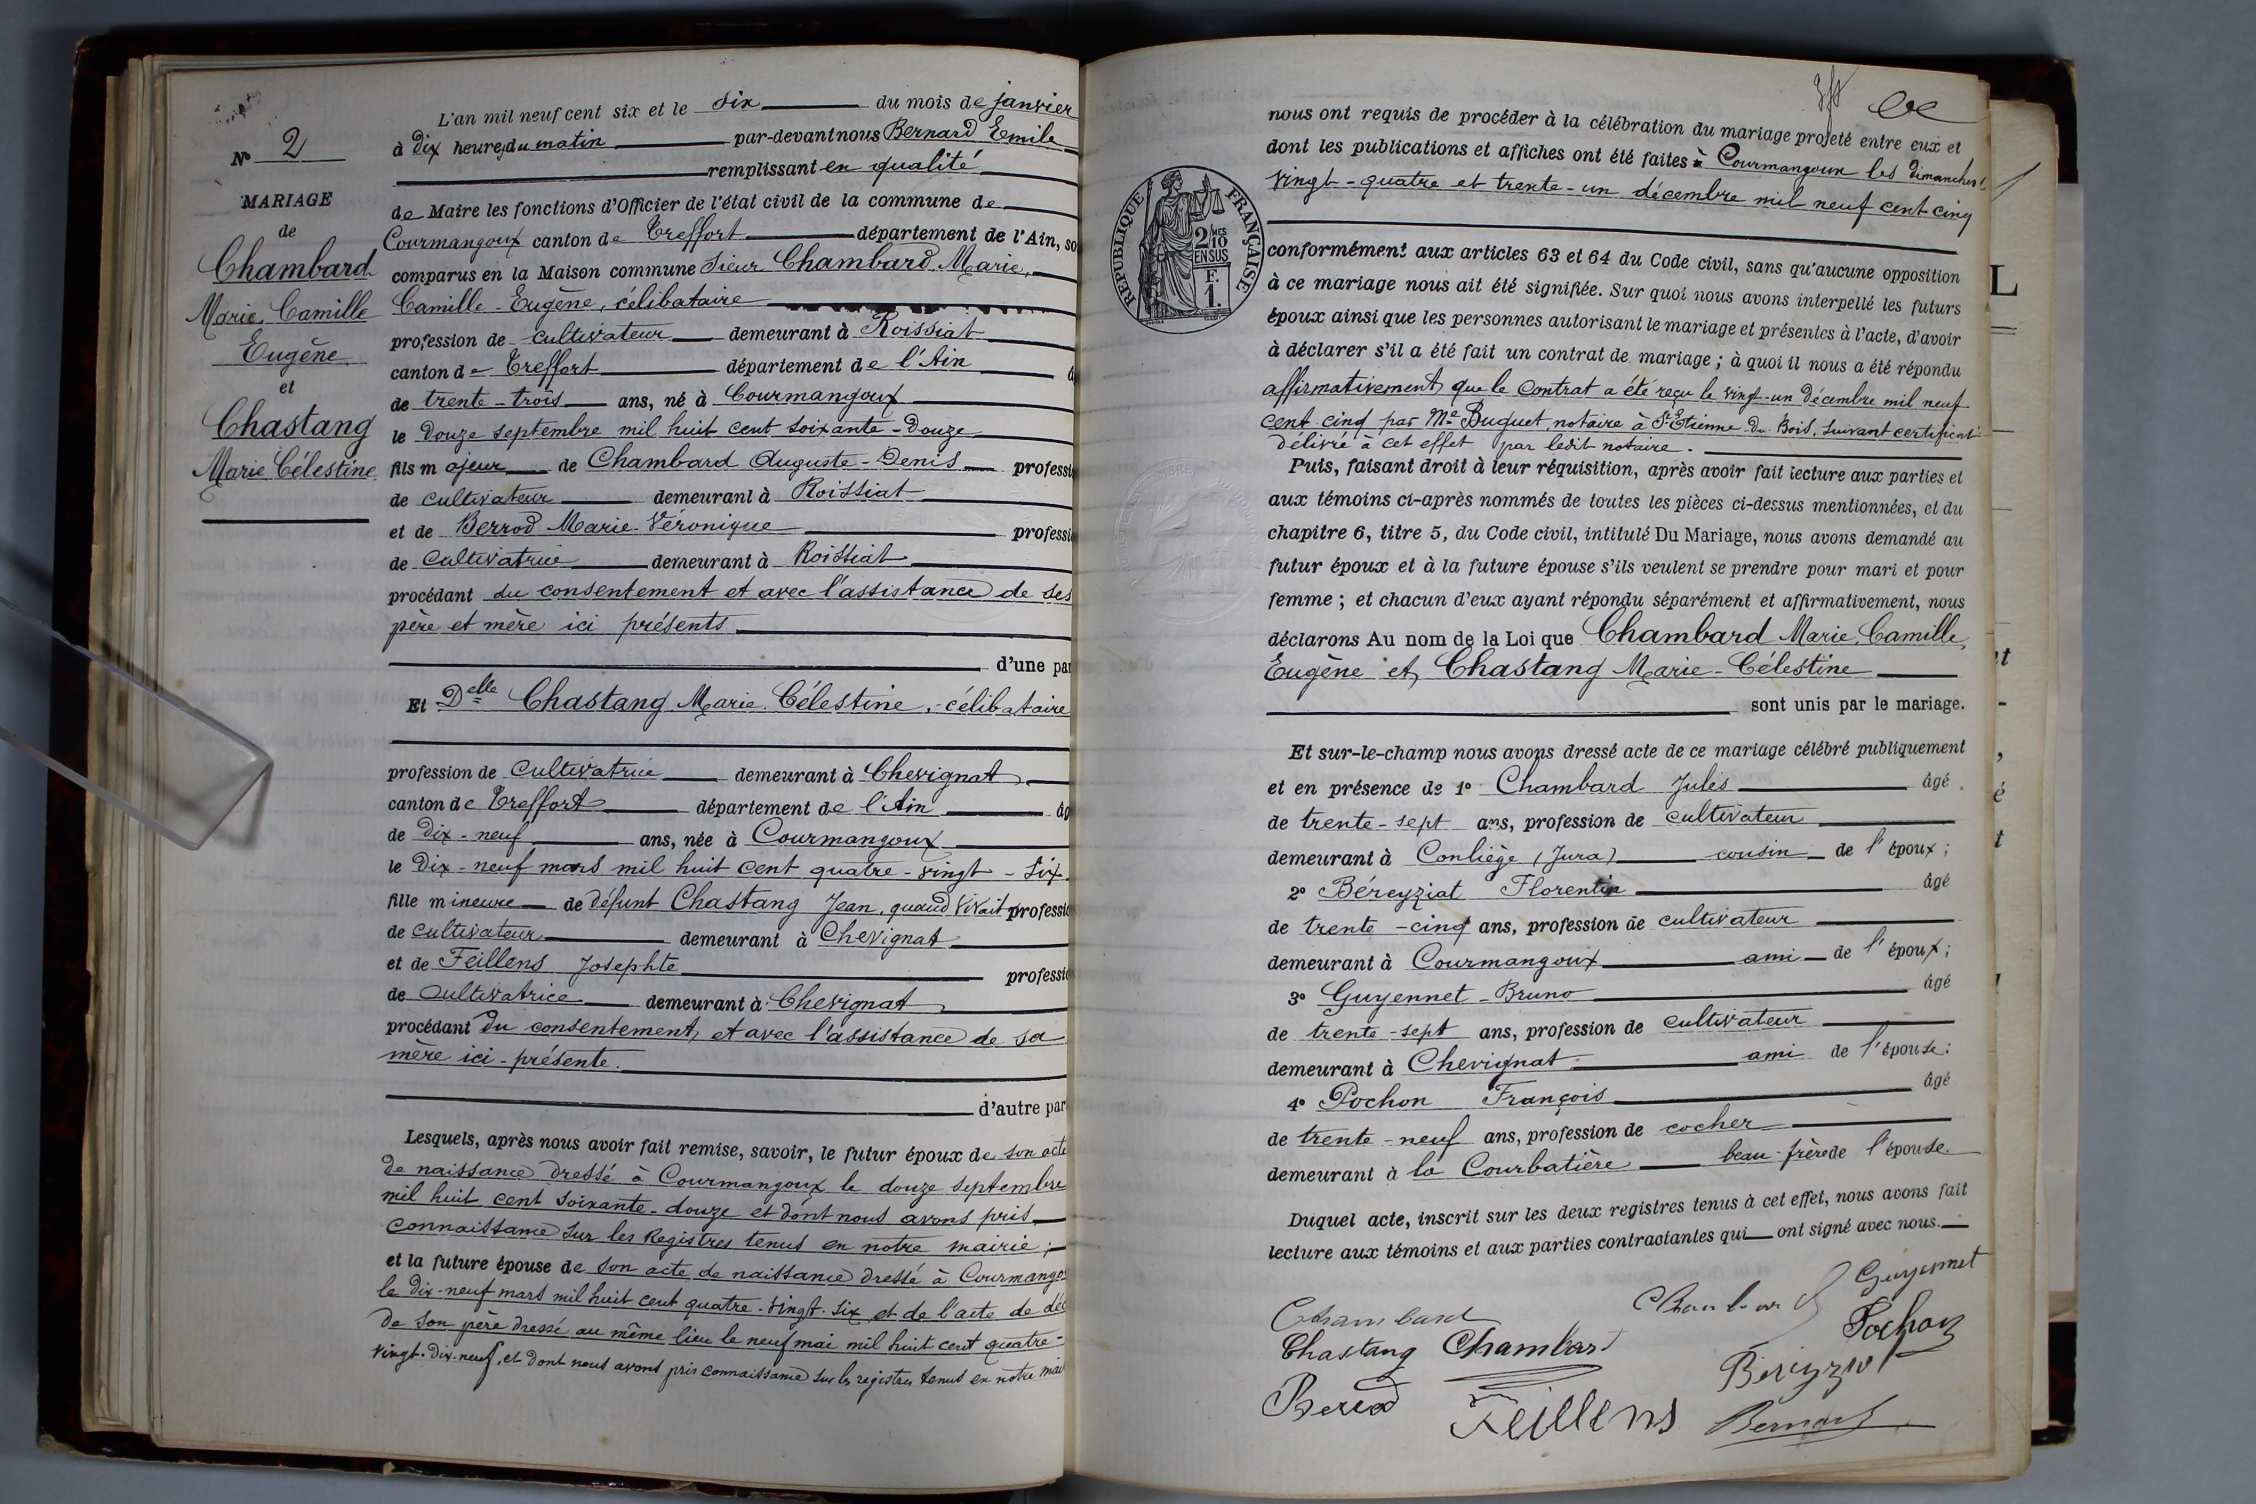 N° 2
MARIAGE
de
Chambard
Marie, Camille
Eugène
et
Chastang
Marie Célestine
L'an mil neuf cent six et le six du mois de janvier
à dix heures du matin par-devant nous Bernard Emile
remplissant en qualité
de Maire les fonctions d'Officier de l'état civil de la commune de
Courmangoux canton de Treffort département de l'Ain, so
comparus en la Maison commune sieur Chambard, Marie,
Camille-Eugène, célibataire
profession de cultivateur demeurant à Roissiat
canton de Treffort département de l'Ain
de trente-trois ans, né à Courmangoux
le douze septembre mil huit cent soixante-douze
fils majeur de Chambard Auguste-Denis professi
de cultivateur demeurant à Roissiat
et de Berrod Marie-Véronique professi
de cultivatrice demeurant à Roissiat
procédant du consentement et avec l'assistance de ses
père et mère ici présents
d'une par
Et Delle Chastang, Marie Célestine, célibataire
profession de cultivatrice demeurant à Chevignat
canton de Treffort département de l'Ain âg
de dix-neuf ans, née à Courmangoux
le dix-neuf mars mil huit cent quatre-vingt-six
fille mineure de défunt Chastang Jean, quand vivait professio
de cultivateur demeurant à Chevignat
et de Feillens Josephte professio
de cultivatrice demeurant à Chevignat
procédant du consentement et avec l'assistance de sa
mère ici-présente.
d'autre par
Lesquels, après nous avoir fait remise, savoir, le futur époux de son acte
de naissance dressé à Courmangoux le douze septembre
mil huit cent soixante-douze et dont nous avons pris
connaissance sur les Registres tenus en notre mairie ;
et la future épouse de son acte de naissance dressé à Courmango
le dix-neuf mars mil huit cent quatre-vingt-six et de l'acte de déc
de son père dressé au même lieu le neuf mai mil huit cent quatre-
vingt-dix-neuf, et dont nous avons pris connaissance sur les registres tenus en notre mai
nous ont requis de procéder à la célébration du mariage projeté entre eux et
dont les publications et affiches ont été faites à Courmangoux les dimanches
vingt-quatre et trente-un décembre mil neuf cent cinq
RÉPUBLIQUE FRANÇAISE
2/10
EN SUS
F.
1.
conformément aux articles 63 et 64 du Code civil, sans qu'aucune opposition
à ce mariage nous ait été signifiée. Sur quoi nous avons interpellé les futurs
époux ainsi que les personnes autorisant le mariage et présentes à l'acte, d'avoir
à déclarer s'il a été fait un contrat de mariage ; à quoi il nous a été répondu
affirmativement que le contrat a été reçu le vingt-un décembre mil neuf
cent cinq par Me Buguet, notaire à St Etienne-du-Bois, suivant certificat
délivré à cet effet par ledit notaire.
Puis, faisant droit à leur réquisition, après avoir fait lecture aux parties et
aux témoins ci-après nommés de toutes les pièces ci-dessus mentionnées, et du
chapitre 6, titre 5, du Code civil, intitulé Du Mariage, nous avons demandé au
futur époux et à la future épouse s'ils veulent se prendre pour mari et pour
femme ; et chacun d'eux ayant répondu séparément et affirmativement, nous
déclarons Au nom de la Loi que Chambard Marie, Camille,
Eugène et Chastang Marie-Célestine
sont unis par le mariage.
Et sur-le-champ nous avons dressé acte de ce mariage célébré publiquement
et en présence de 1° Chambard Jules âgé
de trente-sept ans, profession de cultivateur
demeurant à Conliège (Jura) cousin de l'époux ;
2° Béreyziat Florentin âgé
de trente-cinq ans, profession de cultivateur
demeurant à Courmangoux ami de l'époux ;
3° Guyennet-Bruno âgé
de trente-sept ans, profession de cultivateur
demeurant à Chevignat ami de l'épouse ;
4° Pochon François âgé
de trente-neuf ans, profession de cocher
demeurant à la Courbatière beau-frère de l'épouse.
Duquel acte, inscrit sur les deux registres tenus à cet effet, nous avons fait
lecture aux témoins et aux parties contractantes qui ont signé avec nous.
Chambard Chambard Guyennet
Chastang Chambard Pochon
Berrod Feillens Béreyziat
Bernard